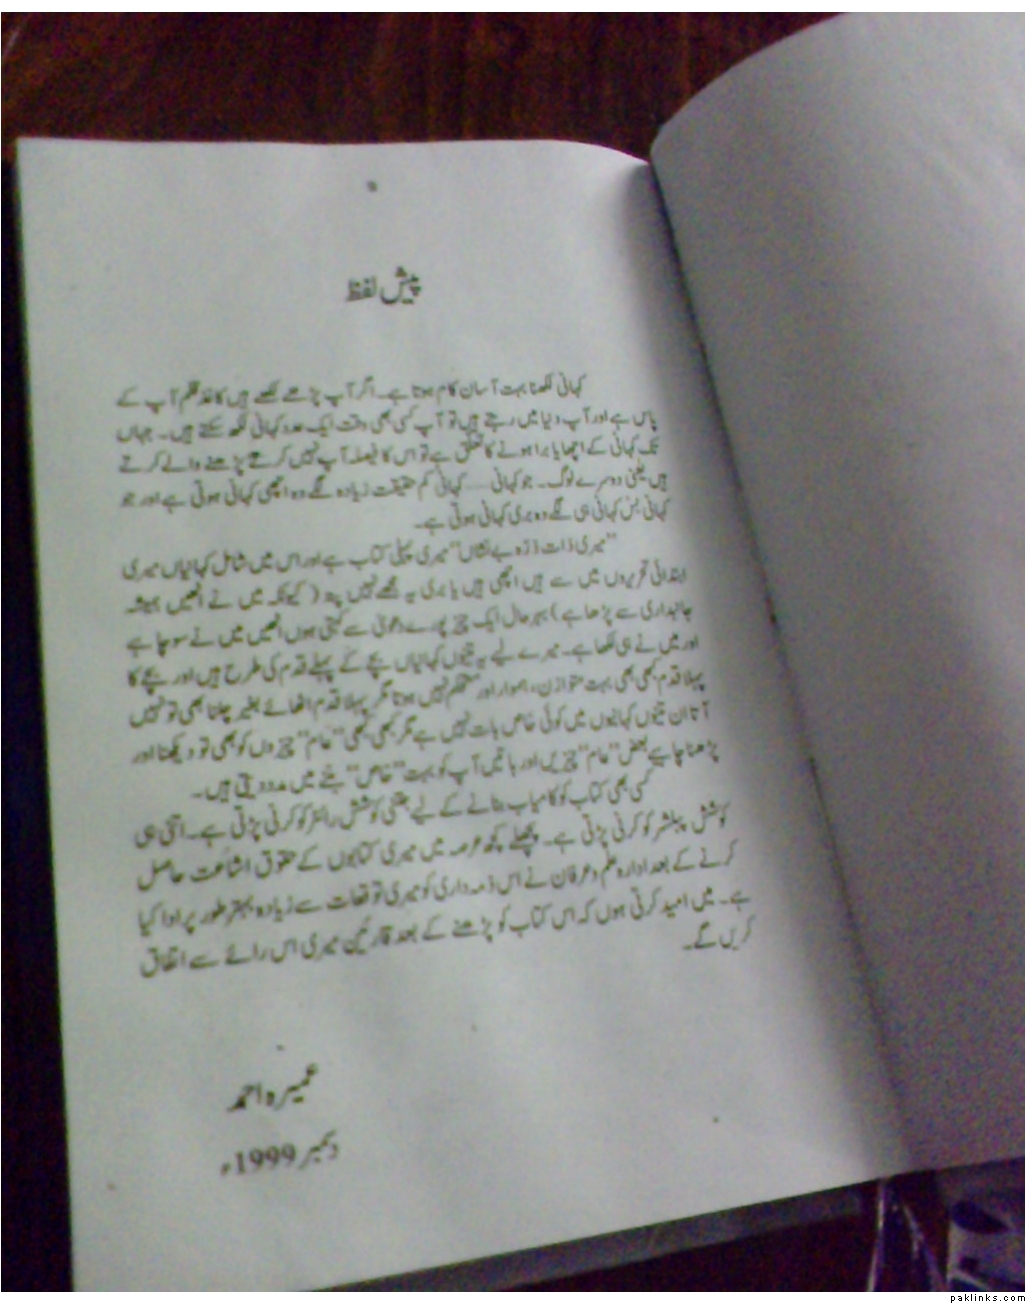 ۵
پیش لفظ
کہانی لکھنا بہت آسان کام ہوتا ہے۔ اگر آپ پڑھے لکھے ہیں کاغذ قلم آپ کے
پاس ہے اور آپ دنیا میں رہتے ہیں تو آپ کسی بھی وقت ایک عدد کہانی لکھ سکتے ہیں۔ جہاں
تک کہانی کے اچھا یا برا ہونے کا تعلق ہے تو اس کا فیصلہ آپ نہیں کرتے پڑھنے والے کرتے
ہیں یعنی دوسرے لوگ۔ جو کہانی ..... کہانی کم حقیقت زیادہ لگے وہ اچھی کہانی ہوتی ہے اور جو
کہانی بس کہانی ہی لگے وہ بری کہانی ہوتی ہے۔
"میری ذات ذرہ بے نشاں" میری پہلی کتاب ہے اور اس میں شامل کہانیاں میری
ابتدائی تحریروں میں سے ہیں اچھی ہیں یا بری یہ مجھے نہیں پتہ (کیونکہ میں نے انھیں ہمیشہ
جانبداری سے پڑھا ہے) بہرحال ایک چیز پورے دعویٰ سے کہتی ہوں انھیں میں نے سوچا ہے
اور میں نے ہی لکھا ہے۔ میرے لیے یہ تینوں کہانیاں بچے کے پہلے قدم کی طرح ہیں اور بچے کا
پہلا قدم کبھی بھی بہت متوازن، ہموار اور مستحکم نہیں ہوتا مگر پہلا قدم اٹھائے بغیر چلنا بھی تو نہیں
آتا ان تینوں کہانیوں میں کوئی خاص بات نہیں ہے مگر کبھی کبھی "عام" چیزوں کو بھی تو دیکھنا اور
پڑھنا چاہیے بعض "عام" چیزیں اور باتیں آپ کو بہت "خاص" بننے میں مدد دیتی ہیں۔
کسی بھی کتاب کو کامیاب بنانے کے لیے جتنی کوشش رائٹر کو کرنی پڑتی ہے۔ اتنی ہی
کوشش پبلشر کو کرنی پڑتی ہے۔ پچھلے کچھ عرصہ میں میری کتابوں کے حقوق اشاعت حاصل
کرنے کے بعد ادارہ علم و عرفان نے اس ذمہ داری کو میری توقعات سے زیادہ بہتر طور پر ادا کیا
ہے۔ میں امید کرتی ہوں کہ اس کتاب کو پڑھنے کے بعد قارئین میری اس رائے سے اتفاق
کریں گے۔
عمیرہ احمد
دسمبر 1999ء
paklinks.com